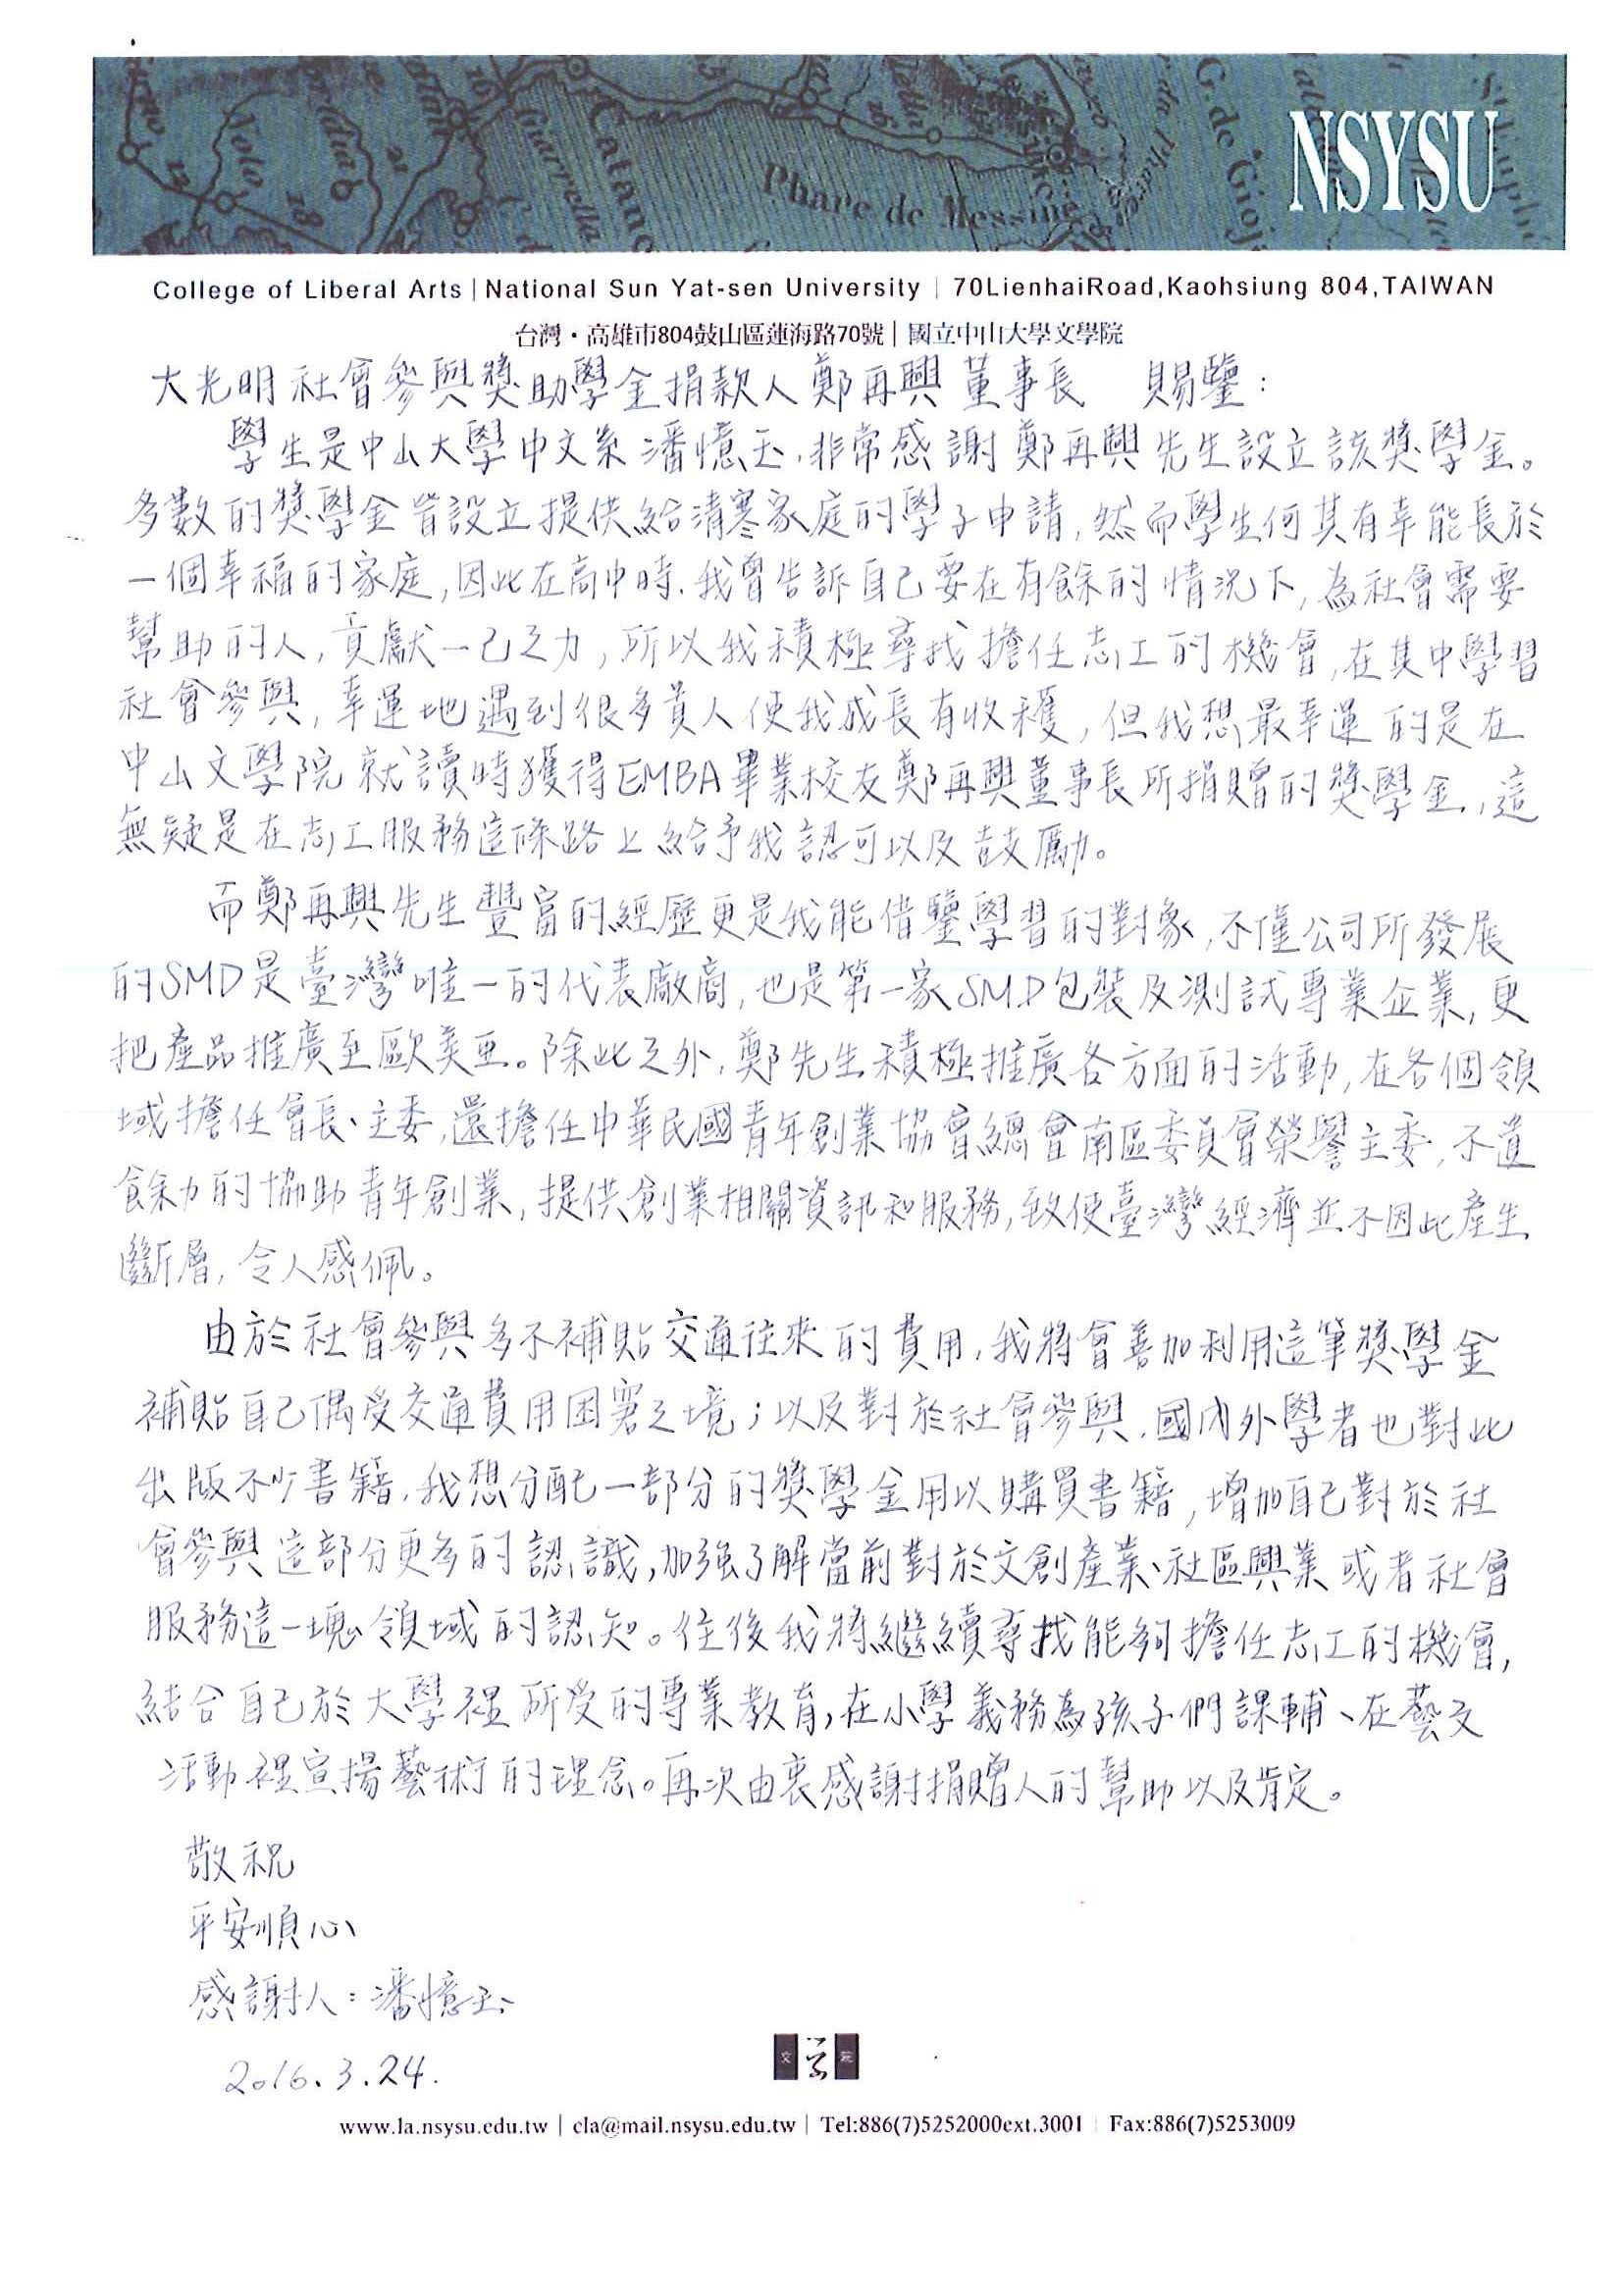 NSYSU
Phare de Messine
College of Liberal Arts | National Sun Yat-sen University | 70LienhaiRoad,Kaohsiung 804,TAIWAN
台灣・高雄市804鼓山區蓮海路70號 | 國立中山大學文學院
大光明社會參與獎助學金捐款人鄭再興董事長 賜鑒：
學生是中山大學中文系潘憶玉，非常感謝鄭再興先生設立該獎學金。
多數的獎學金皆設立提供給清寒家庭的學子申請，然而學生何其有幸能長於
一個幸福的家庭，因此在高中時，我曾告訴自己要在有餘的情況下，為社會需要
幫助的人，貢獻一己之力，所以我積極尋找擔任志工的機會，在其中學習
社會參與，幸運地遇到很多貴人使我成長有收穫，但我想最幸運的是在
中山文學院就讀時獲得EMBA畢業校友鄭再興董事長所捐贈的獎學金，這
無疑是在志工服務這條路上給予我認可以及鼓勵。
而鄭再興先生豐富的經歷更是我能借鑒學習的對象，不僅公司所發展
的SMD是臺灣唯一的代表廠商，也是第一家SMD包裝及測試專業企業，更
把產品推廣至歐美亞。除此之外，鄭先生積極推廣各方面的活動，在各個領
域擔任會長、主委，還擔任中華民國青年創業協會總會南區委員會榮譽主委，不遺
餘力的協助青年創業，提供創業相關資訊和服務，致使臺灣經濟並不因此產生
斷層，令人感佩。
由於社會參與多不補貼交通往來的費用，我將會善加利用這筆獎學金
補貼自己偶受交通費用困窘之境；以及對於社會參與，國內外學者也對此
出版不少書籍，我想分配一部分的獎學金用以購買書籍，增加自己對於社
會參與這部分更多的認識，加強了解當前對於文創產業、社區興業或者社會
服務這一塊領域的認知。往後我將繼續尋找能夠擔任志工的機會，
結合自己於大學裡所受的專業教育，在小學義務為孩子們課輔、在藝文
活動裡宣揚藝術的理念。再次由衷感謝捐贈人的幫助以及肯定。
敬祝
平安順心
感謝人：潘憶玉
2016.3.24.
文 學 院
www.la.nsysu.edu.tw | cla@mail.nsysu.edu.tw | Tel:886(7)5252000ext.3001 | Fax:886(7)5253009